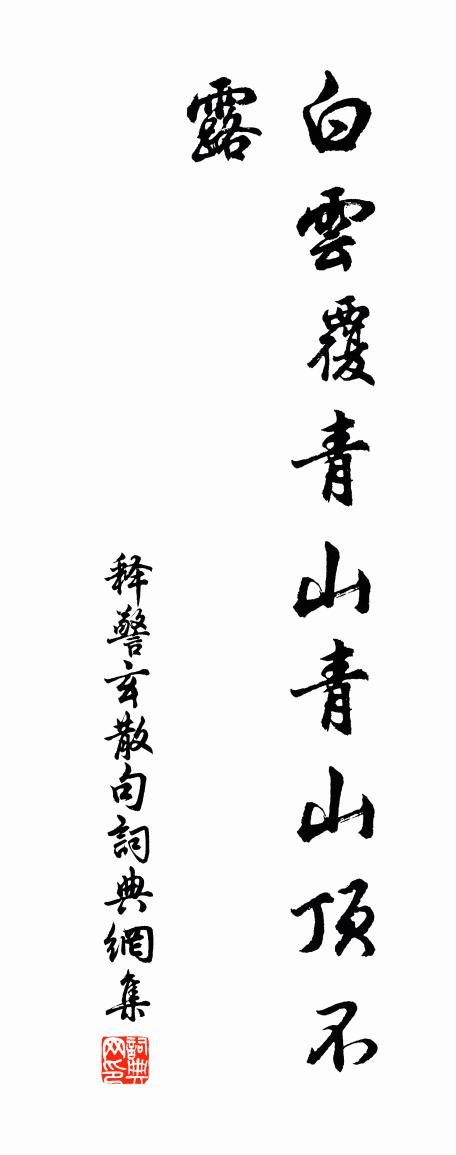 白雲覆青山青山頂不
露
释警玄散句詞典網集
詞典
网印